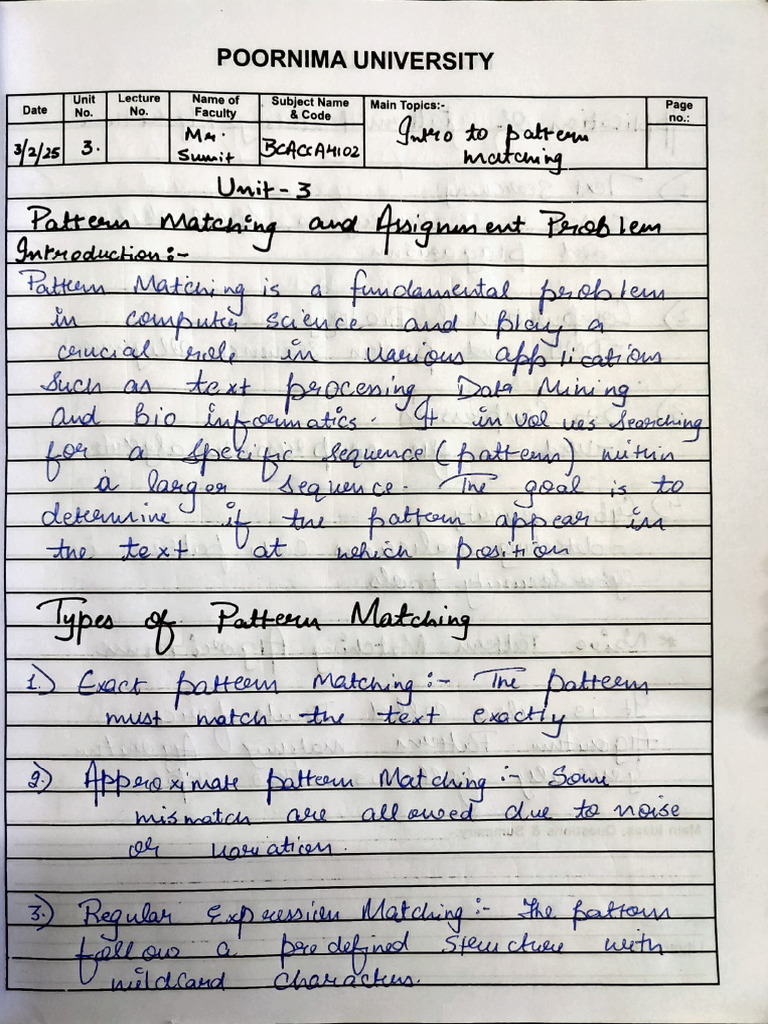 POORNIMA UNIVERSITY
Date Unit No. Lecture No. Name of Faculty Subject Name & Code Main Topics:- Page no.:
3/2/25 3. Mr. Sumit BCACCA4102 Intro to pattern matching
Unit-3
Pattern Matching and Assignment Problem
Introduction:-
Pattern Matching is a fundamental problem
in computer science and play a
crucial role in various applications
Such as text processing Data Mining
and Bio informatics. It involves searching
for a specific sequence (pattern) within
a larger sequence. The goal is to
determine if the pattern appear in
the text. at which position
Types of Pattern Matching
1.) Exact pattern Matching:- The pattern
must match the text exactly
2.) Approximate pattern Matching:- Some
mismatch are allowed due to noise
or variation.
3.) Regular Expression Matching:- The pattern
follow a predefined structure with
wildcard characters.